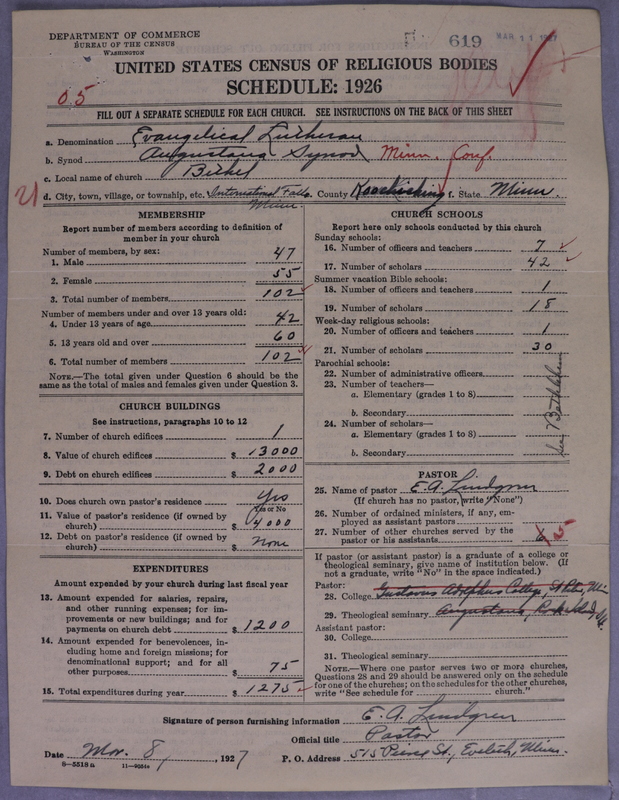 DEPARTMENT OF COMMERCE
BUREAU OF THE CENSUS
WASHINGTON
619 MAR 11 1927
UNITED STATES CENSUS OF RELIGIOUS BODIES
SCHEDULE: 1926
05
FILL OUT A SEPARATE SCHEDULE FOR EACH CHURCH. SEE INSTRUCTIONS ON THE BACK OF THIS SHEET
a. Denomination Evangelical Lutheran
b. Synod Augustana Synod Minn. Conf.
c. Local name of church Bethel
d. City, town, village, or township, etc. International Falls Minn. County Koochiching f. State Minn.
MEMBERSHIP
Report number of members according to definition of
member in your church
Number of members, by sex:
1. Male 47
2. Female 55
3. Total number of members 102
Number of members under and over 13 years old:
4. Under 13 years of age 42
5. 13 years old and over 60
6. Total number of members 102
NOTE.—The total given under Question 6 should be
the same as the total of males and females given under Question 3.
CHURCH BUILDINGS
See instructions, paragraphs 10 to 12
7. Number of church edifices 1
8. Value of church edifices $ 13000
9. Debt on church edifices $ 2000
10. Does church own pastor's residence Yes
Yes or No
11. Value of pastor's residence (if owned by
church) $ 4000
12. Debt on pastor's residence (if owned by
church) $ None
EXPENDITURES
Amount expended by your church during last fiscal year
13. Amount expended for salaries, repairs,
and other running expenses; for im-
provements or new buildings; and for
payments on church debt $ 1200
14. Amount expended for benevolences, in-
cluding home and foreign missions; for
denominational support; and for all
other purposes $ 75
15. Total expenditures during year $ 1275
CHURCH SCHOOLS
Report here only schools conducted by this church
Sunday schools:
16. Number of officers and teachers 7
17. Number of scholars 42
Summer vacation Bible schools:
18. Number of officers and teachers 1
19. Number of scholars 18
Week-day religious schools:
20. Number of officers and teachers 1
21. Number of scholars 30
Parochial schools:
22. Number of administrative officers
23. Number of teachers—
a. Elementary (grades 1 to 8)
b. Secondary
24. Number of scholars—
a. Elementary (grades 1 to 8)
b. Secondary
See Bethlehem
PASTOR
25. Name of pastor E. A. Lindgren
(If church has no pastor, write "None")
26. Number of ordained ministers, if any, em-
ployed as assistant pastors
27. Number of other churches served by the
pastor or his assistants 6 5
If pastor (or assistant pastor) is a graduate of a college or
theological seminary, give name of institution below. (If
not a graduate, write "No" in the space indicated.)
Pastor:
28. College Gustavus Adolphus College, St Peter, Minn
29. Theological seminary Augustana, Rock Island, Ill.
Assistant pastor:
30. College
31. Theological seminary
NOTE.—Where one pastor serves two or more churches,
Questions 28 and 29 should be answered only on the schedule
for one of the churches; on the schedules for the other churches,
write "See schedule for church."
Signature of person furnishing information E. A. Lindgren
Official title Pastor
Date Mar. 8, 1927 P. O. Address 515 Pierce St., Eveleth, Minn.
8—5518a 11—9554a